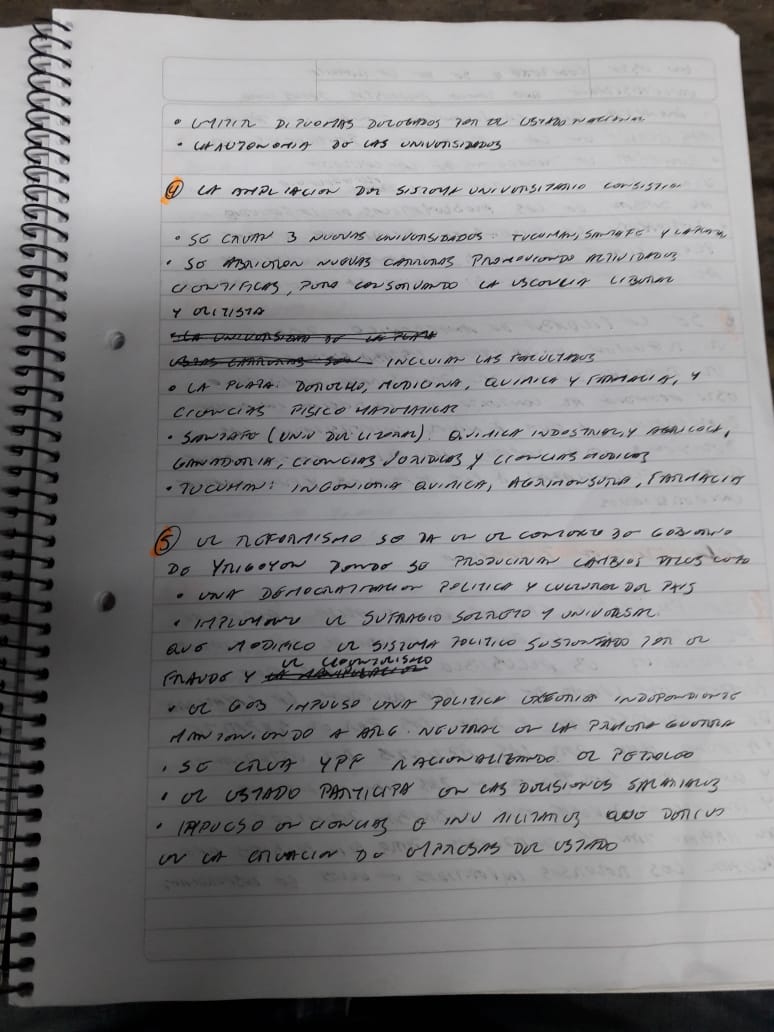 • EMITIR DIPLOMAS DELEGADOS POR EL ESTADO NACIONAL
• LA AUTONOMIA DE LAS UNIVERSIDADES
4 LA AMPLIACION DEL SISTEMA UNIVERSITARIO CONSISTIA
• SE CREAN 3 NUEVAS UNIVERSIDADES: TUCUMAN, SANTA FE Y LA PLATA
• SE ABRIERON NUEVAS CARRERAS PROMOVIENDO ACTIVIDADES
CIENTIFICAS, PERO CONSERVANDO LA ESCENCIA LIBERAL
Y ELITISTA
• LA UNIVERSIDAD DE LA PLATA
CARRERAS INCLUIAN LAS FACULTADES
• LA PLATA: DERECHO, MEDICINA, QUIMICA Y FARMACIA, Y
CIENCIAS FISICO MATEMATICAS
• SANTA FE (UNIV DEL LITORAL): QUIMICA INDUSTRIAL, Y AGRICOLA,
GANADERIA, CIENCIAS JURIDICAS Y CIENCIAS MEDICAS
• TUCUMAN: INGENIERIA QUIMICA, AGRIMENSURA, FARMACIA
5 EL REFORMISMO SE DA EN EL CONTEXTO DE GOBIERNO
DE YRIGOYEN DONDE SE PRODUCIRIAN CAMBIOS TALES COMO
• UNA DEMOCRATIZACION POLITICA Y CULTURAL DEL PAIS
• IMPLEMENTO EL SUFRAGIO SECRETO Y UNIVERSAL
QUE MODIFICO EL SISTEMA POLITICO SUSTENTADO POR EL
FRAUDE Y LA MANIPULACION EL CLIENTELISMO
• EL GOB IMPULSO UNA POLITICA EXTERIOR INDEPENDIENTE
MANTENIENDO A ARG. NEUTRAL EN LA PRIMERA GUERRA
• SE CREA YPF NACIONALIZANDO EL PETROLEO
• EL ESTADO PARTICIPA EN LAS DECISIONES SALARIALES
• IMPULSO EN CIENCIAS E INV MILITARES QUE
EN LA CREACION DE EMPRESAS DEL ESTADO